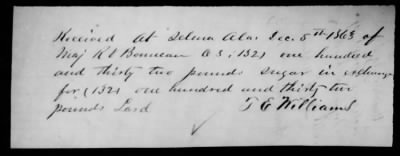 Received At Selma Ala. Dec. 5th 1863 of
Maj R V Bonneau C S, (132) one hundred
and thirty two pounds sugar in exchange
for (132) one hundred and thirty two
pounds Lard T E Williams